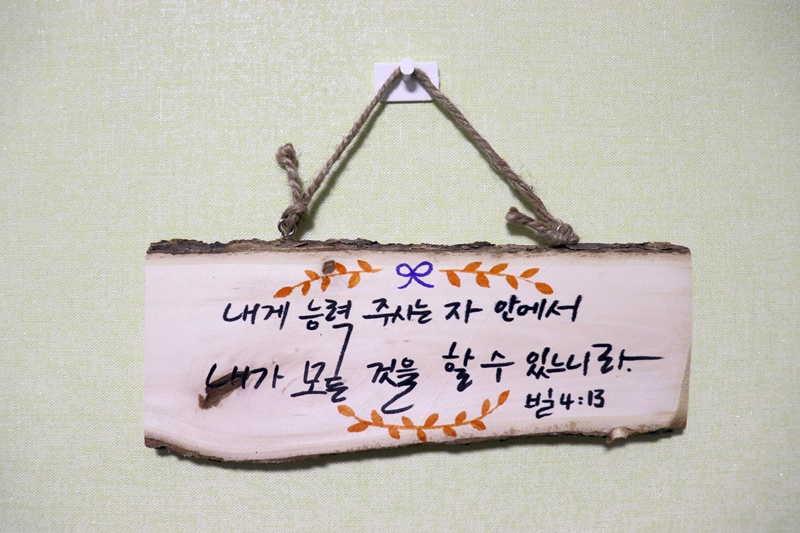 내게 능력 주시는 자 안에서
내가 모든 것을 할 수 있느니라.
빌 4:13